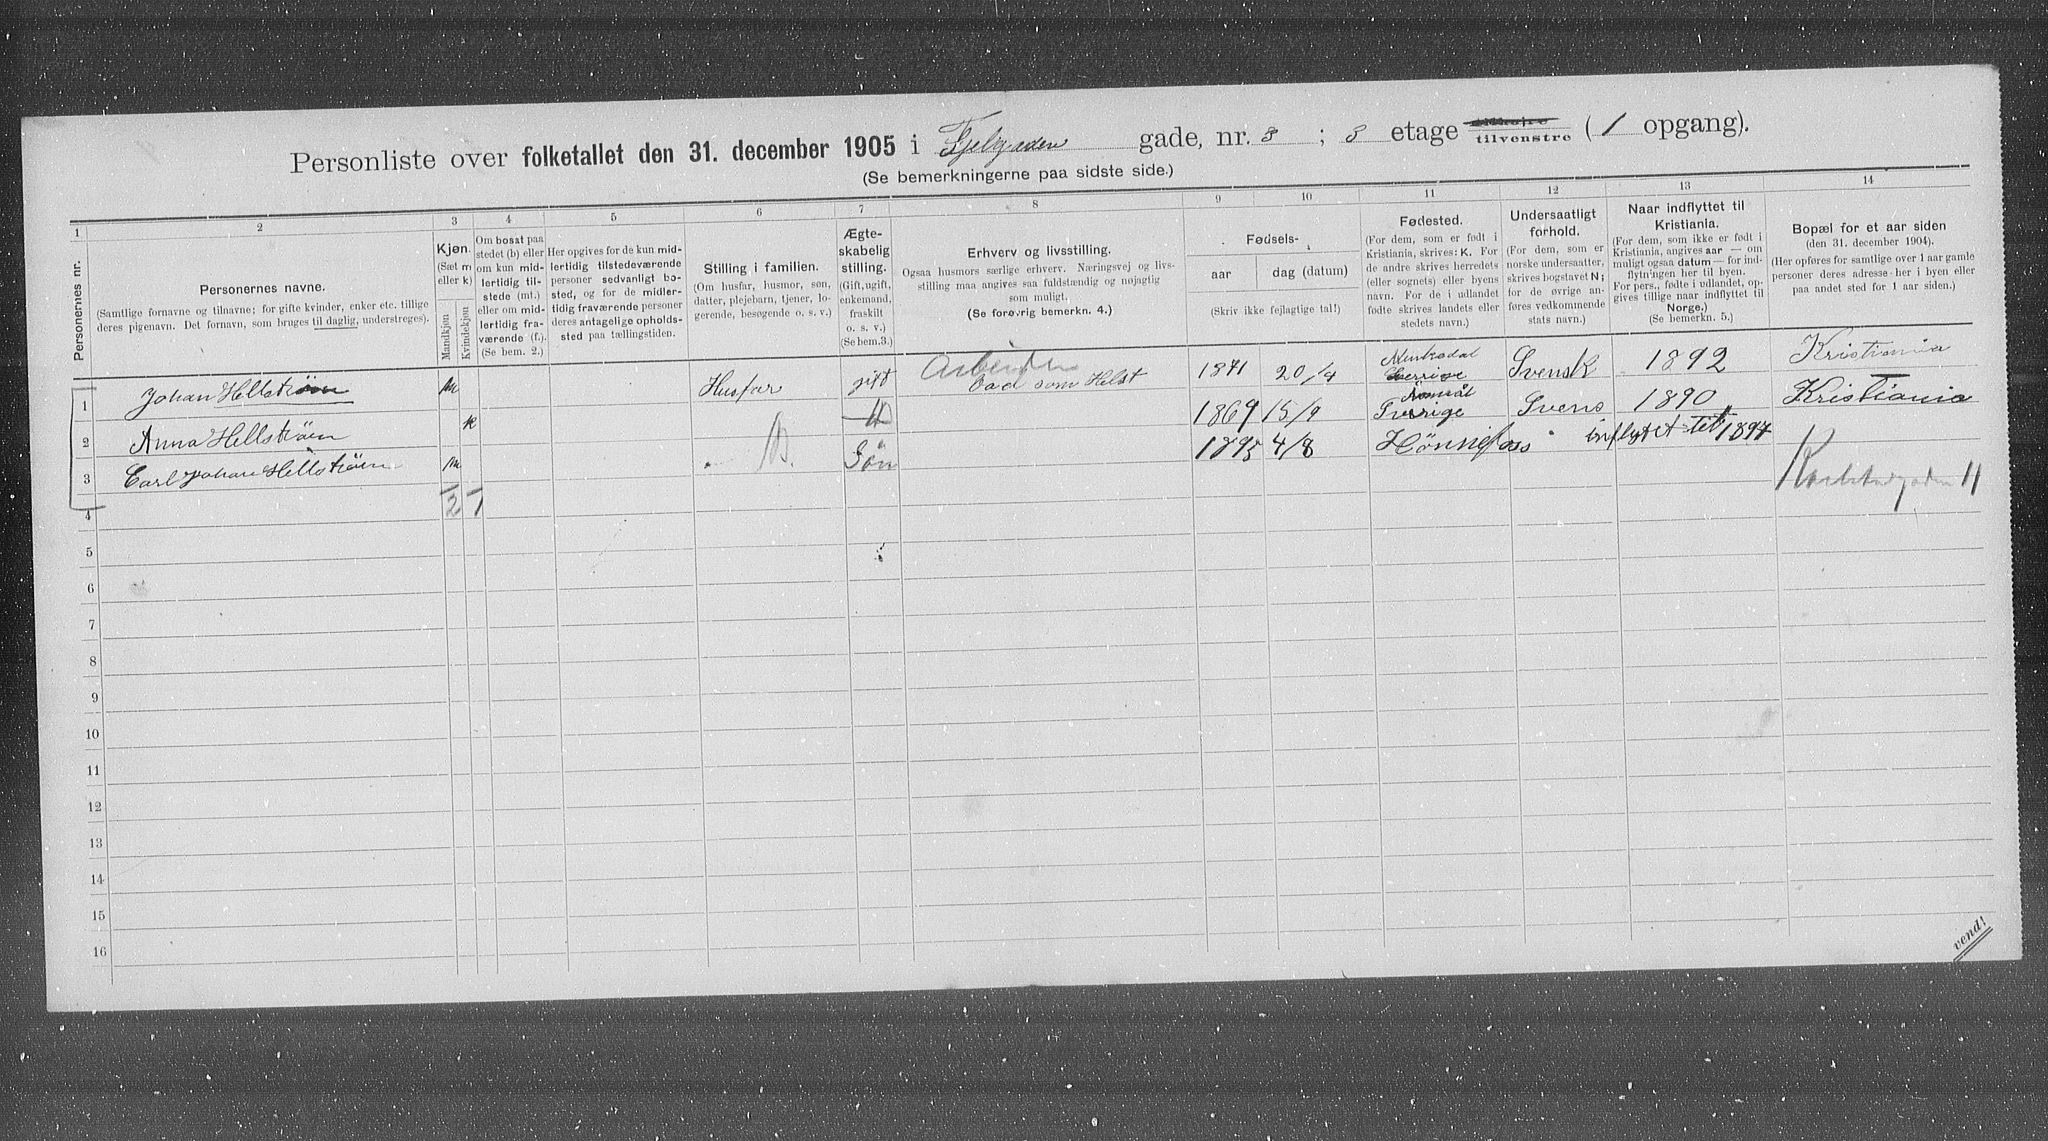 Personliste over folketallet den 31. december 1905 i Fjeldgaden gade, nr. 3 ; 3 etage tilvenstre ( 1 opgang).
(Se bemerkningerne paa sidste side.)
1 2 3 4 5 6 7 8 9 10 11 12 13 14
Personernes nr.
Personernes navne.
(Samtlige fornavne og tilnavne; for gifte kvinder, enker etc. tillige
deres pigenavn. Det fornavn, som bruges til daglig, understreges).
Kjøn.
(Sæt m
eller k)
Mandkjøn
Kvindekjøn
Om bosat paa
stedet (b) eller
om kun mid-
lertidig til-
stede (mt.)
eller om mid-
lertidig fra-
værende (f.).
(Se bem. 2.)
Her opgives for de kun mid-
lertidig tilstedeværende
personer sedvanligt bo-
sted, og for de midler-
tidig fraværende personer
deres antagelige opholds-
sted paa tællingstiden.
Stilling i familien.
(Om husfar, husmor, søn,
datter, plejebarn, tjener, lo-
gerende, besøgende o. s. v.)
Ægte-
skabelig
stilling.
(Gift, ugift,
enkemand,
fraskilt
o. s. v.)
(Se bem.3.)
Erhverv og livsstilling.
Ogsaa husmors særlige erhverv. Næringsvej og livs-
stilling maa angives saa fuldstændig og nøjagtig
som muligt.
(Se forøvrig bemerkn. 4.)
Fødsels-
aar dag (datum)
(Skriv ikke fejlagtige tal!)
Fødested.
(For dem, som er født i
Kristiania, skrives: K. For
de andre skrives herredets
(eller sognets) eller byens
navn. For de i udlandet
fødte skrives landets eller
stedets navn.)
Undersaatligt
forhold.
(For dem, som er
norske undersaatter,
skrives bogstavet N;
for de øvrige an-
føres vedkommende
stats navn.)
Naar indflyttet til
Kristiania.
(For dem, som ikke er født i
Kristiania, angives aar — om
muligt ogsaa datum — for ind-
flytningen her til byen.
For pers., fødte i udlandet, op-
gives tillige naar indflyttet til
Norge.)
(Se bemerkn. 5.)
Bopæl for et aar siden
(den 31. december 1904).
(Her opføres for samtlige over 1 aar gamle
personer deres adresse her i byen eller
paa andet sted for 1 aar siden.)
1 Johan Hellströem m Husfar gift Arbeider som Helst 1871 20/4 Sverrige Svensk 1892 Kristiania
2 Anna Hellströem k 1869 15/9 Sverrige Svens 1890 Kristiania
3 Carl Johan Hellströem m Søn 1895 4/8 Hønnefoss inflytet tel 1897
4 2 1
5
6
7
8
9
10
11
12
13
14
15
16
vend!